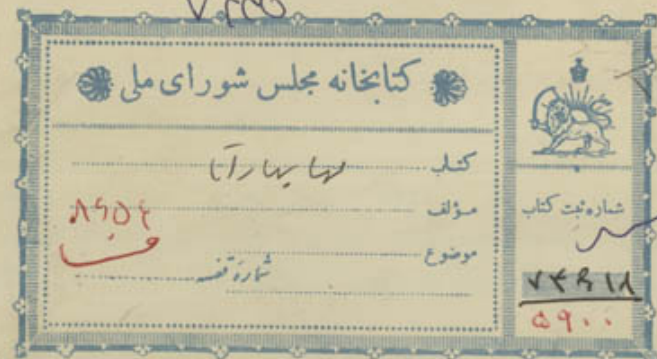 کتابخانه مجلس شورای ملی
کتاب مهابهاراتا
مؤلف
موضوع
شماره قفسه
۸۹۵۴
شماره ثبت کتاب
۷۳۹۱۸
۵۹۰۰